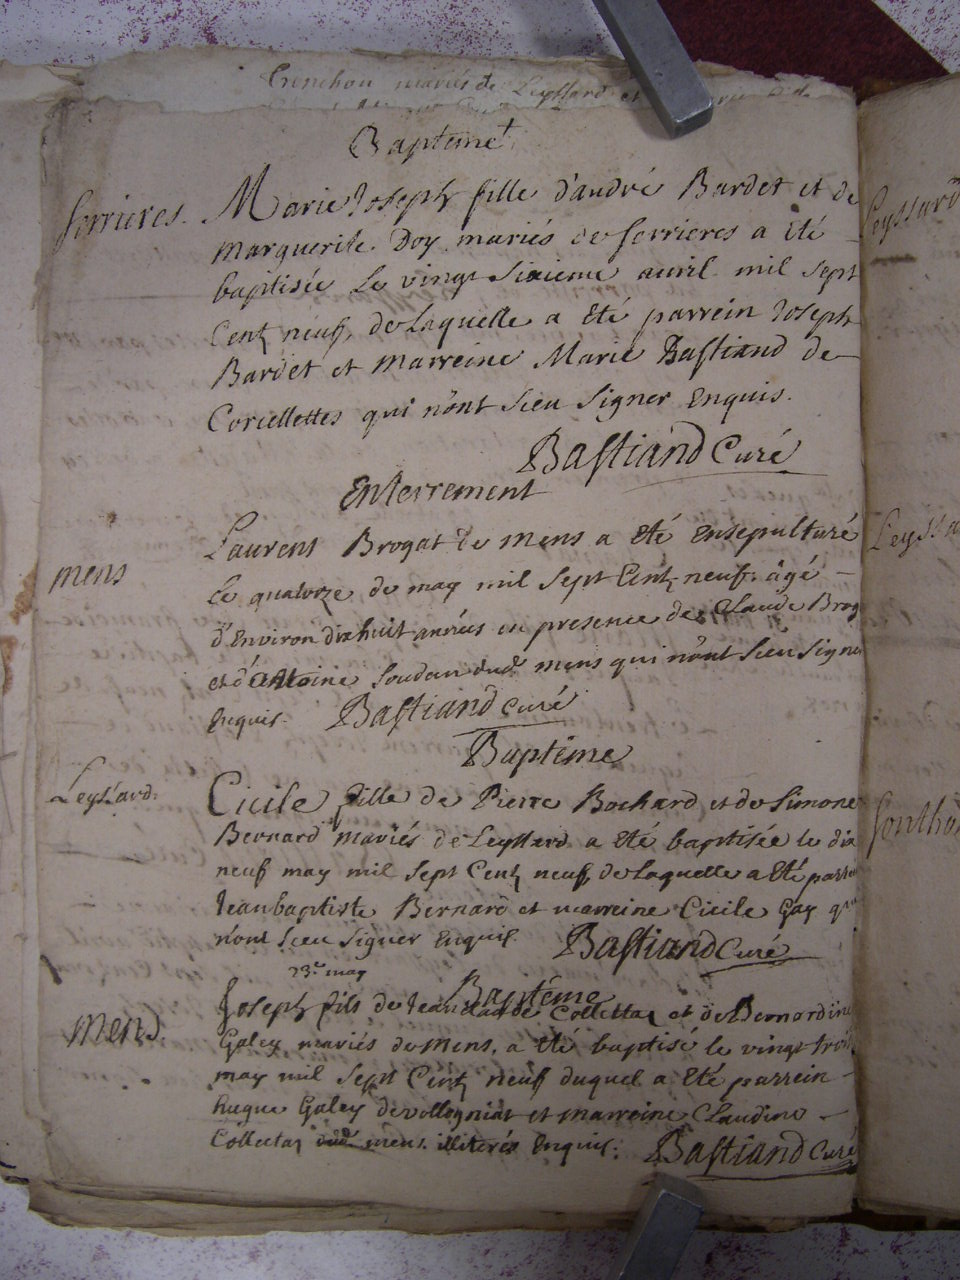 Crenchou mariés de Leyssard et
Baptême
serrieres.
Marie Joseph fille d'andré Bardet et de
Marguerite Doy mariés de serrieres a été
baptisée le vingt sixieme auril mil sept
Cent neuf, de laquelle a été parrein Joseph
Bardet et marreine Marie Bastiand de
Corcellettes qui n'ont sceu signer Enquis.
Bastiand Curé
Enterrement
mens
Laurens Brogat de mens a Eté Ensepulturé
le quatorze de may mil sept Cent neuf âgé
d'Environ dix huit années en presence de Claude Brog
et d'Antoine Soudan dud. mens qui n'ont sceu signer
Enquis. Bastiand Curé
Baptême
Leyssard.
Cicile fille de Pierre Bochard et de Simone
Bernard mariés de Leyssard a Eté baptisée le dix
neuf may mil sept Cent neuf, de laquelle a Eté parrei
Jean baptiste Bernard et marreine Cicile Gay qui
n'ont sceu signer Enquis. Bastiand Curé
23.e may
Baptême
mens.
Joseph fils de Jean claude Collettaz et de Bernardine
Galey mariés de Mens, a été baptisé le vingt trois
may mil sept Cent neuf duquel a Eté parrein
hugue Galey de vollogniat et marreine Claudine
Collettaz dud. mens. illiterés Enquis. Bastiand Curé
Leyssard
Leyssa
sontho